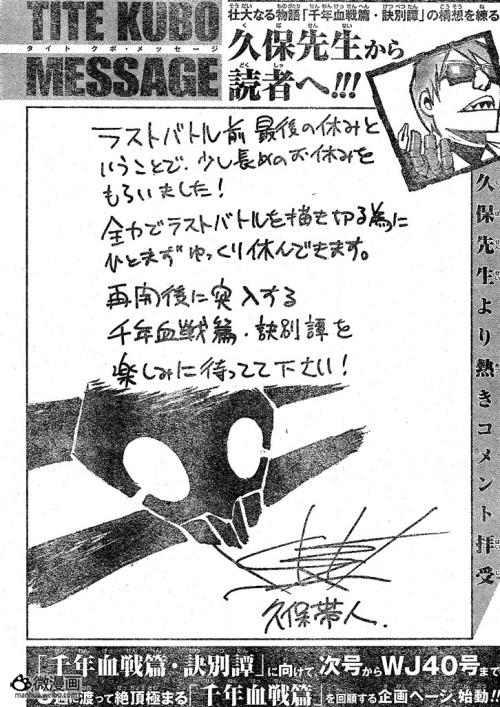 TITE KUBO
タイトクボ・メッセージ
MESSAGE
壮大なる物語「千年血戦篇・訣別譚」の構想を練る
久保先生から
読者へ!!!
ラストバトル前 最後の休みと
いうことで、少し長めのお休みを
もらいました!
全力でラストバトルを描き切る為に
ひとまずゆっくり休んできます。
再開後に突入する
千年血戦篇・訣別譚を
楽しみに待ってて下さい!
久保帯人.
久保先生より熱きコメント拝受
「千年血戦篇・訣別譚」に向けて、次号からWJ40号まで
週に渡って絶頂極まる「千年血戦篇」を回顧する企画ページ、始動!!
微漫画
www.manhua.weibo.com